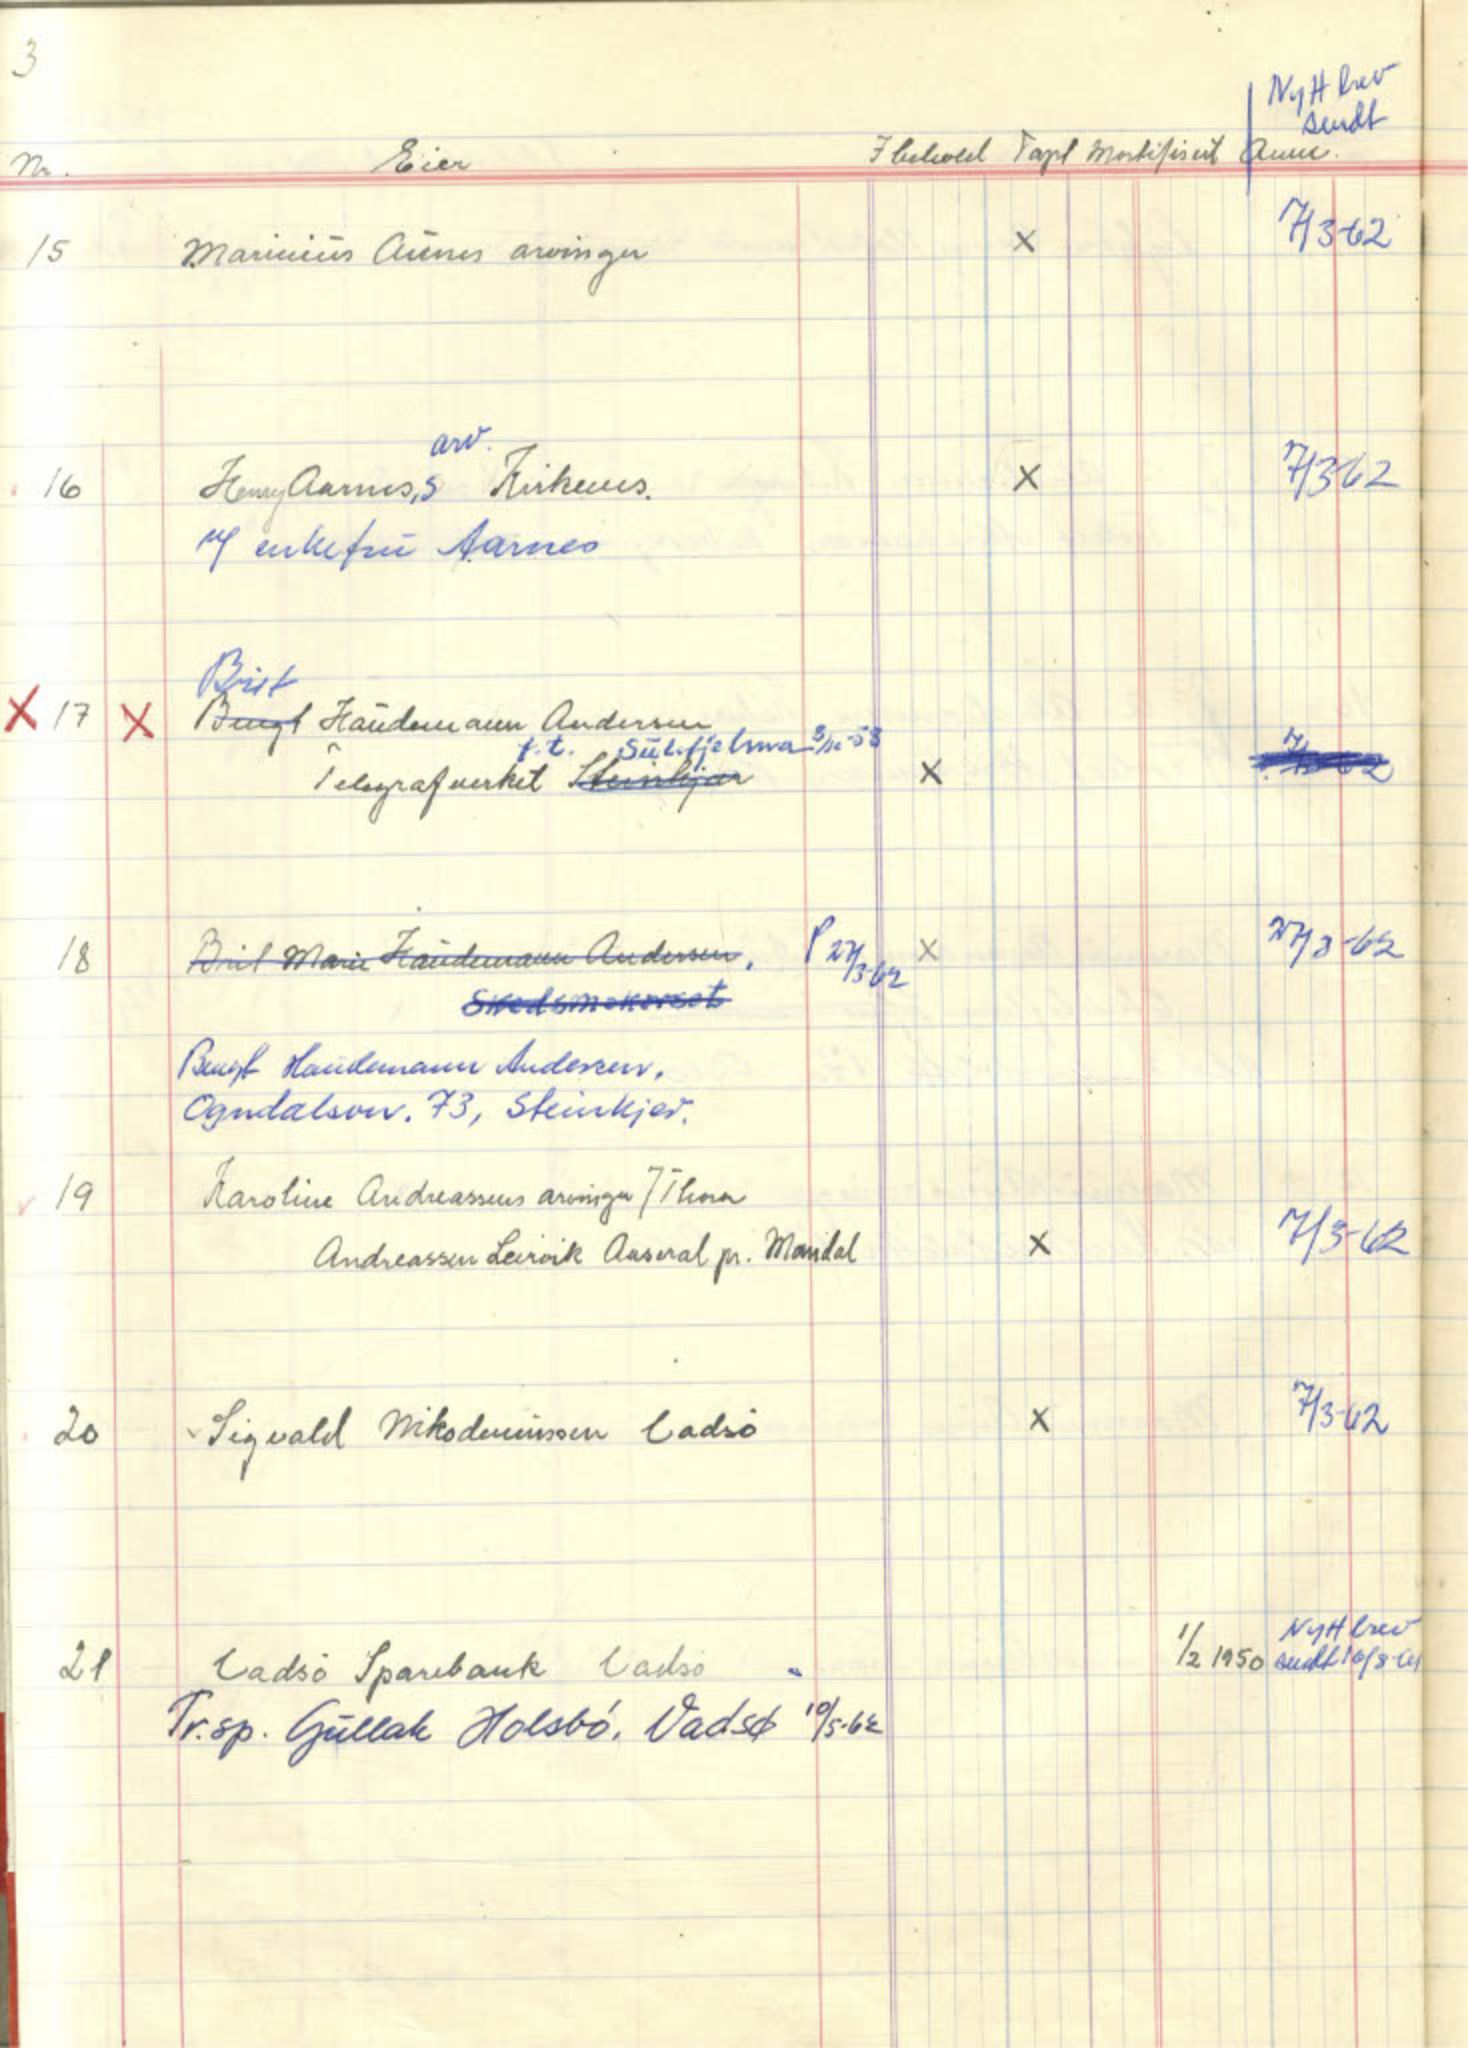 3
Nytt brev
sendt
Nr. Eier I behold Tapt Mortifisert Anm.
15 Marinius Aunes arvinger X 7/3-62
arv.
16 Henry Aarnes,s Kirkenes. X 7/3-62
v/ enkefru Aarnes
Brit
X 17 X Bengt Haudemann Andersen
f.t. Sulitjelma -58
Telegrafverket Steinkjer X
18 Brit Marie Haudemann Andersen. P 27/3-62 X 27/3-62
Skedsmokorset
Bengt Haudemann Andersen.
Ogndalsvn. 73, Steinkjer.
19 Karoline Andreassens arvinger / Thora
Andreassen Leirvik Åseral pr. Mandal X 7/3-62
20 Sigvald Nikodemussen Vadsö X 7/3-62
Nytt brev
21 Vadsö Sparebank Vadsö 1/2 1950 sendt
Tr.sp. Gullak Holsbö, Vadsø 10/5-62